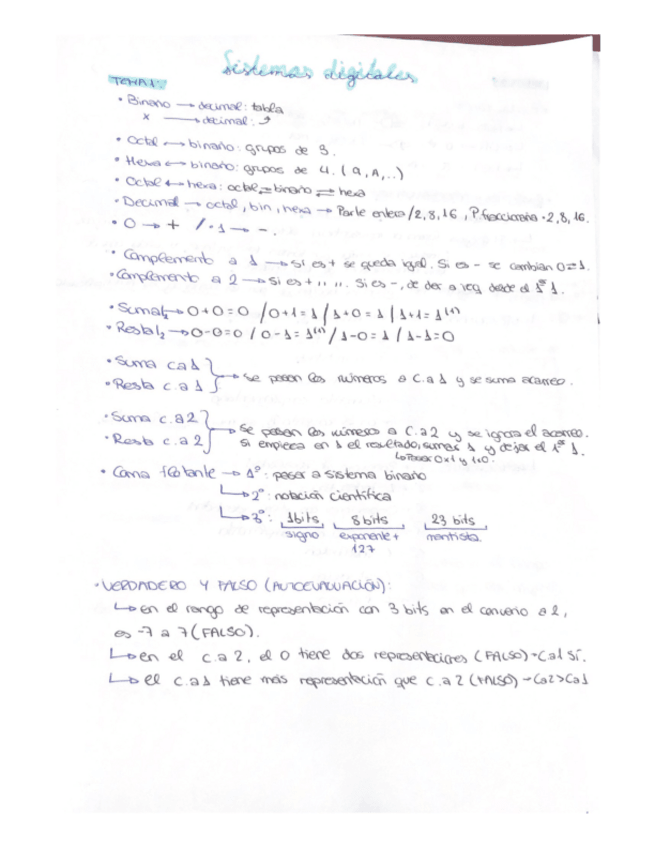 Sistemas digitales
TEMA 1:
• Binario → decimal: tabla
x → decimal:
• Octal ↔ binario: grupos de 3.
• Hexa ↔ binario: grupos de 4. (9, A,...)
• Octal ↔ hexa: octal ⇌ binario ⇌ hexa
• Decimal → octal, bin, hexa → Parte entera /2,8,16, P. fraccionaria · 2,8,16.
• 0 → + / · 1 → -.
• Complemento a 1 → si es + se queda igual. Si es - se cambian 0⇄1.
• Complemento a 2 → si es + '' ''. Si es -, de der a izq desde el 1er 1.
• Suma → 0+0=0 / 0+1=1 / 1+0=1 / 1+1=1(1)
• Resta → 0-0=0 / 0-1=1(1) / 1-0=1 / 1-1=0
• Suma ca1
• Resta c.a 1 → se pasan los números a C.a 1 y se suma acarreo.
• Suma c.a2
• Resta c.a2 → se pasan los números a C.a2 y se ignora el acarreo.
si empieza en 1 el resultado, sumar 1 y dejar el 1er 1.
0x1 y 1x0.
• Coma flotante → 1º: pasar a sistema binario
↳ 2º: notación científica
↳ 3º: 1bits 8 bits 23 bits
signo exponente + mantisa.
127
• VERDADERO Y FALSO (AUTOEVALUACIÓN):
↳ en el rango de representación con 3 bits en el convenio a 2,
es -7 a 7 (FALSO).
↳ en el c.a 2, el 0 tiene dos representaciones (FALSO) → Ca1 sí.
↳ el c.a1 tiene más representación que c.a 2 (FALSO) → Ca2>Ca1